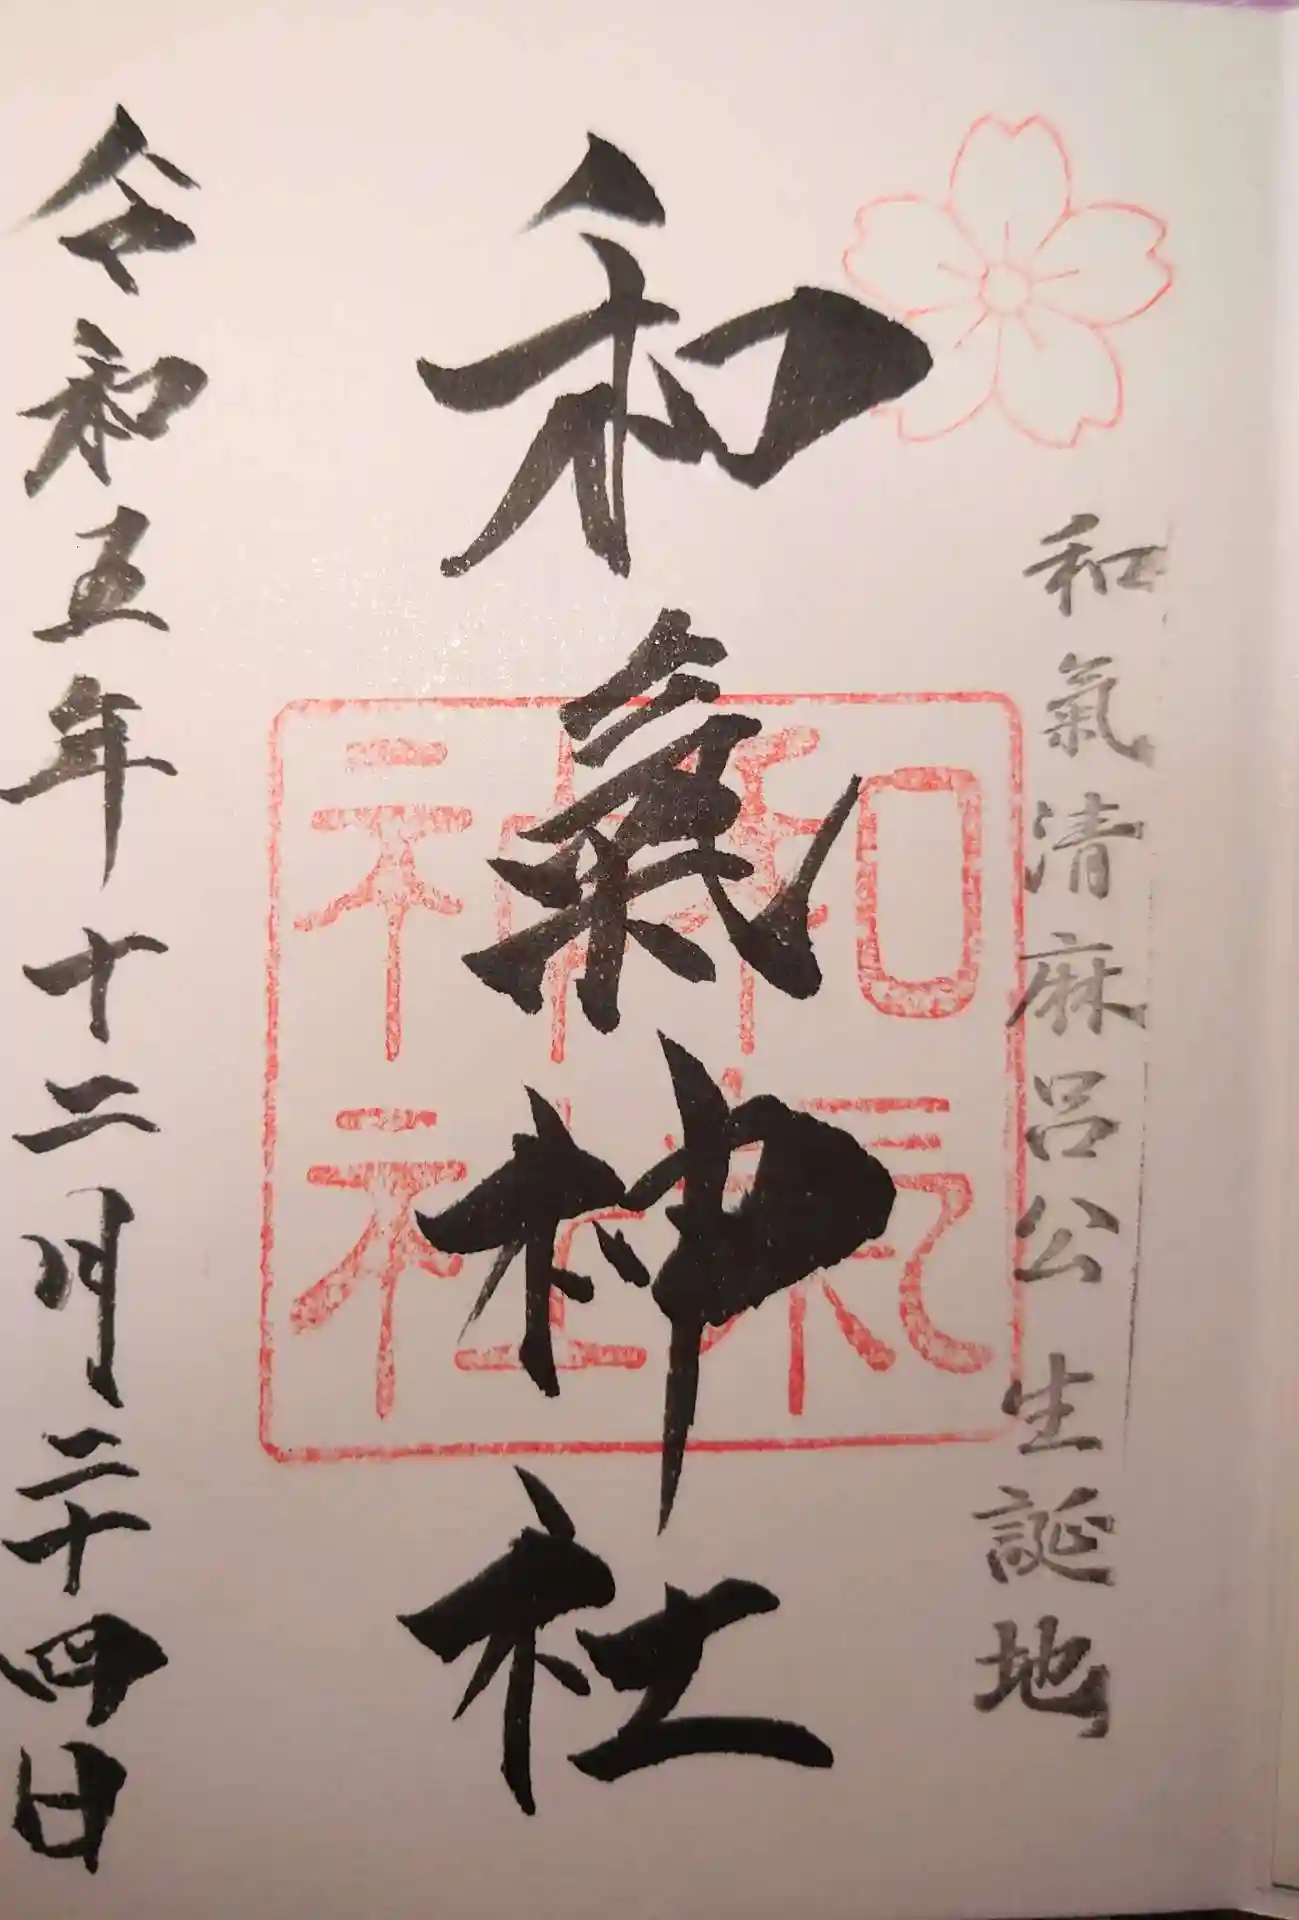 和氣清麻呂公 生誕地
和氣神社
和気神社
令和五年十二月二十四日